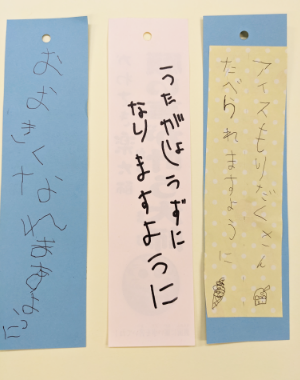 アイスもりだくさん
たべられますように
うたがじょうずに
なりますように
おおきく